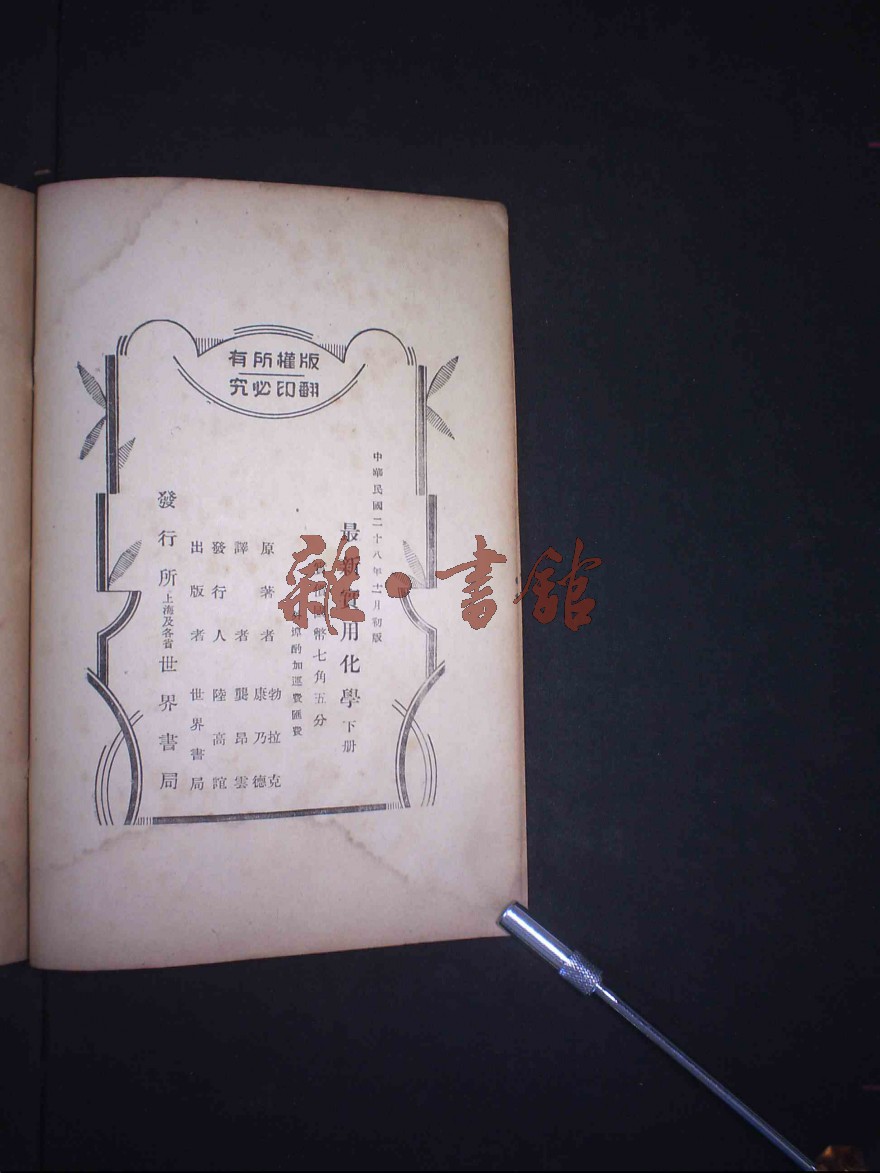 版權所有
翻印必究
中華民國二十八年十一月初版
最新實用化學 下册
幣七角五分
埠酌加運費匯費
原著者 勃拉克 康乃德
譯者 龔昂雲
發行人 陸高誼
出版者 世界書局
發行所 上海及各省 世界書局
雜·書館